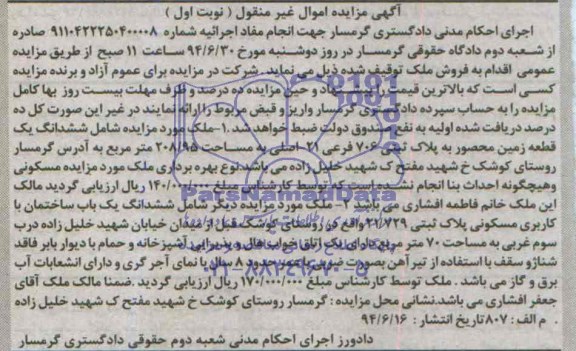 آگهی مزایده اموال غیر منقول ( نوبت اول )
اجرای احکام مدنی دادگستری گرمسار جهت انجام مفاد اجرائیه شماره ۹۱۱۰۴۲۲۲۵۰۴۰۰۰۰۸ صادره
از شعبه دوم دادگاه حقوقی گرمسار در روز دوشنبه مورخ ۹۴/۶/۳۰ ساعت ۱۱ صبح از طریق مزایده
عمومی اقدام به فروش ملک توقیف شده ذیل می نماید. شرکت در مزایده برای عموم آزاد و برنده مزایده
کسی است که بالاترین قیمت را پیشنهاد و حین مزایده ده درصد و ظرف مهلت بیست روز بها کامل
مزایده را به حساب سپرده دادگستری گرمسار واریز و قبض مربوط را ارائه نمایند در غیر این صورت کل ده
درصد دریافت شده اولیه به نفع صندوق دولت ضبط خواهد شد .۱-ملک مورد مزایده شامل ششدانگ یک
قطعه زمین محصور به پلاک ثبتی ۷۰۶ فرعی ۲۱-اصلی به مساحت ۲۰۸/۹۵ متر مربع به آدرس گرمسار
روستای کوشک خ شهید مفتح ک شهید خلیل زاده می باشد.نوع بهره برداری ملک مورد مزایده مسکونی
وهیچگونه احداث بنا انجام نشده است ک توسط کارشناس مبلغ ۱۴۰/۰۰۰/۰۰۰ ریال ارزیابی گردید مالک
این ملک خانم فاطمه افشاری می باشد ۲- ملک مورد مزایده دوم شامل ششدانگ یک باب ساختمان با
کاربری مسکونی پلاک ثبتی ۲۱/۷۲۹ واقع در روستای کوشک قبل از میدان خیابان شهید خلیل زاده درب
سوم غربی به مساحت ۷۰ متر مربع دارای یک اتاق خواب هال و پذیرایی آشپزخانه و حمام با دیوار بابر فاقد
شناژو سقف با استفاده از تیر آهن بصورت ضربی با عمر حدود ۸ سال با نمای آجر گری و دارای انشعابات آب
برق و گاز می باشد . ملک توسط کارشناس مبلغ ۱۷۰/۰۰۰/۰۰۰ ریال ارزیابی گردید .ضمنا مالک ملک آقای
جعفر افشاری می باشد.نشانی محل مزایده : گرمسار روستای کوشک خ شهید مفتح ک شهید خلیل زاده
. م الف : ۸۰۷ تاریخ انتشار : ۹۴/۶/۱۶
دادورز اجرای احکام مدنی شعبه دوم حقوقی دادگستری گرمسار
ParsNamadData
۰۲۱-۸۸۳۴۹۶۷۰-۵